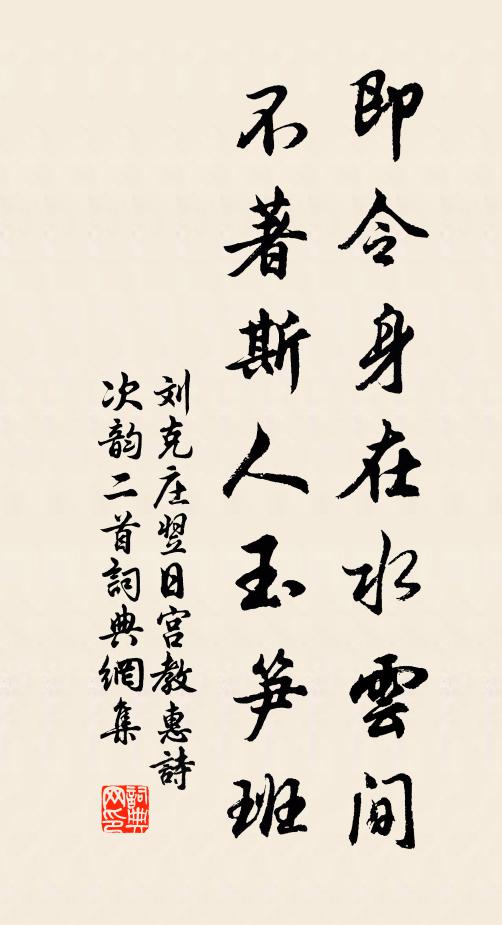 即令身在水雲間
不著斯人玉笋班
刘克庄翌日宫教惠詩
次韵二首詞典網集
詞典
网印